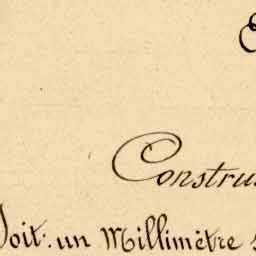 Constru
Soit: un Millimètre